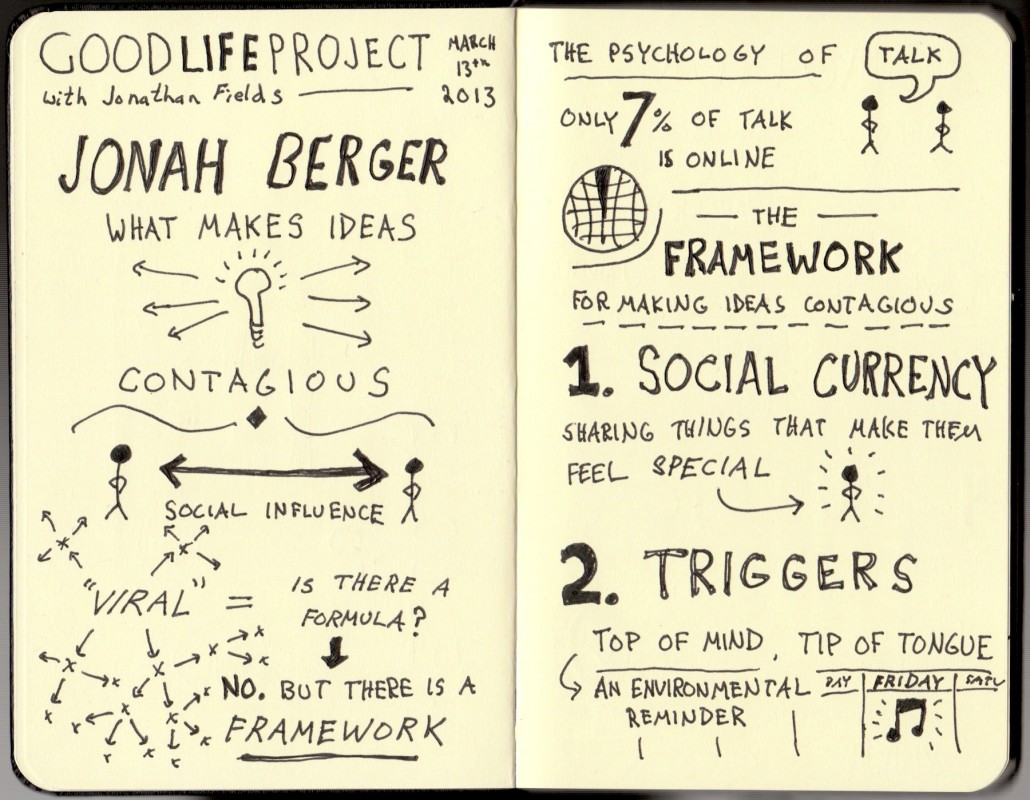 GOOD LIFE PROJECT
with Jonathan Fields
MARCH
13th
2013
JONAH BERGER
WHAT MAKES IDEAS
CONTAGIOUS
SOCIAL INFLUENCE
"VIRAL" =
IS THERE A
FORMULA?
NO. BUT THERE IS A
FRAMEWORK
THE PSYCHOLOGY OF
TALK
ONLY 7% OF TALK
IS ONLINE
THE
FRAMEWORK
FOR MAKING IDEAS CONTAGIOUS
1. SOCIAL CURRENCY
SHARING THINGS THAT MAKE THEM
FEEL SPECIAL
2. TRIGGERS
TOP OF MIND, TIP OF TONGUE
AN ENVIRONMENTAL
REMINDER
DAY FRIDAY SATU